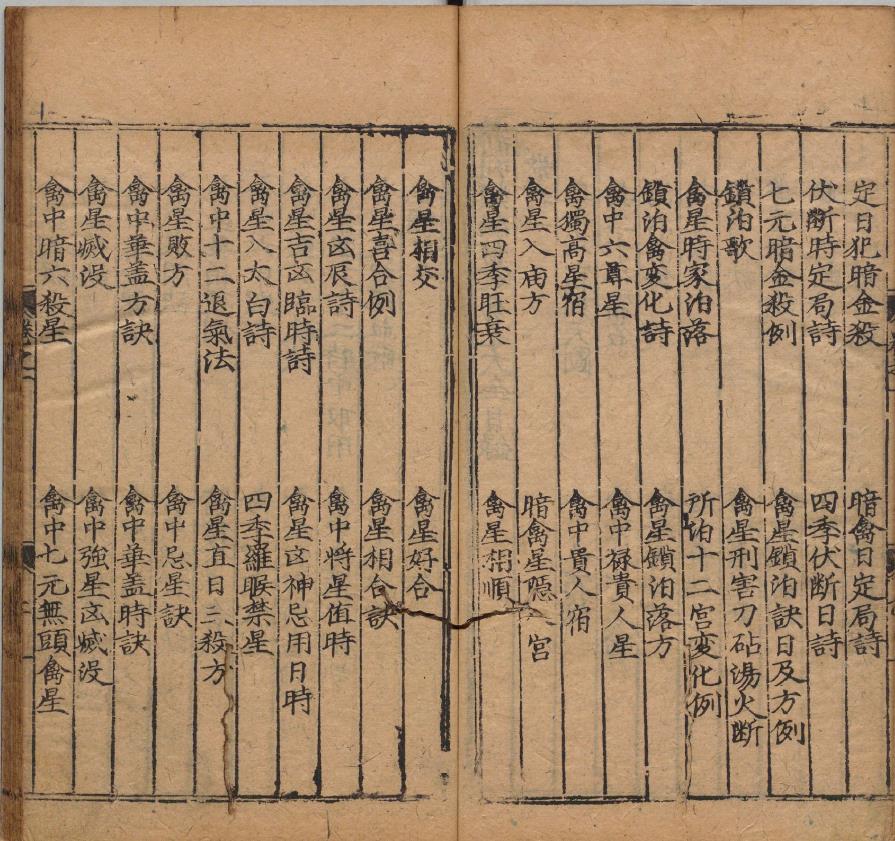 定日犯暗金殺　暗禽日定局詩
伏斷時定局詩　四季伏断日詩
七元暗金殺例　禽星鎖泊訣日及方例
鎖泊歌　禽星刑害刀砧湯火断
禽星時家泊落　所泊十二宮変化例
鎖泊禽変化詩　禽星鎖泊落方
禽中六尊星　禽中禄貴人星
禽獨高星宿　禽中貴人宿
禽星入庙方　暗禽星隠 宮
禽星四季旺衰　禽星相順
禽星相交　禽星好合
禽星喜合例　禽星相合訣
禽星凶辰詩　禽中將星值時
禽星吉凶臨時詩　禽星凶神忌用日時
禽星入太白詩　四季羅睺禁星
禽中十二退氣法　禽星直日三殺方
禽星敗方　禽中忌星訣
禽中華盖方訣　禽中華盖時訣
禽星滅没　禽中強星凶滅没
禽中暗六殺星　禽中七元無頭禽星
卷之一